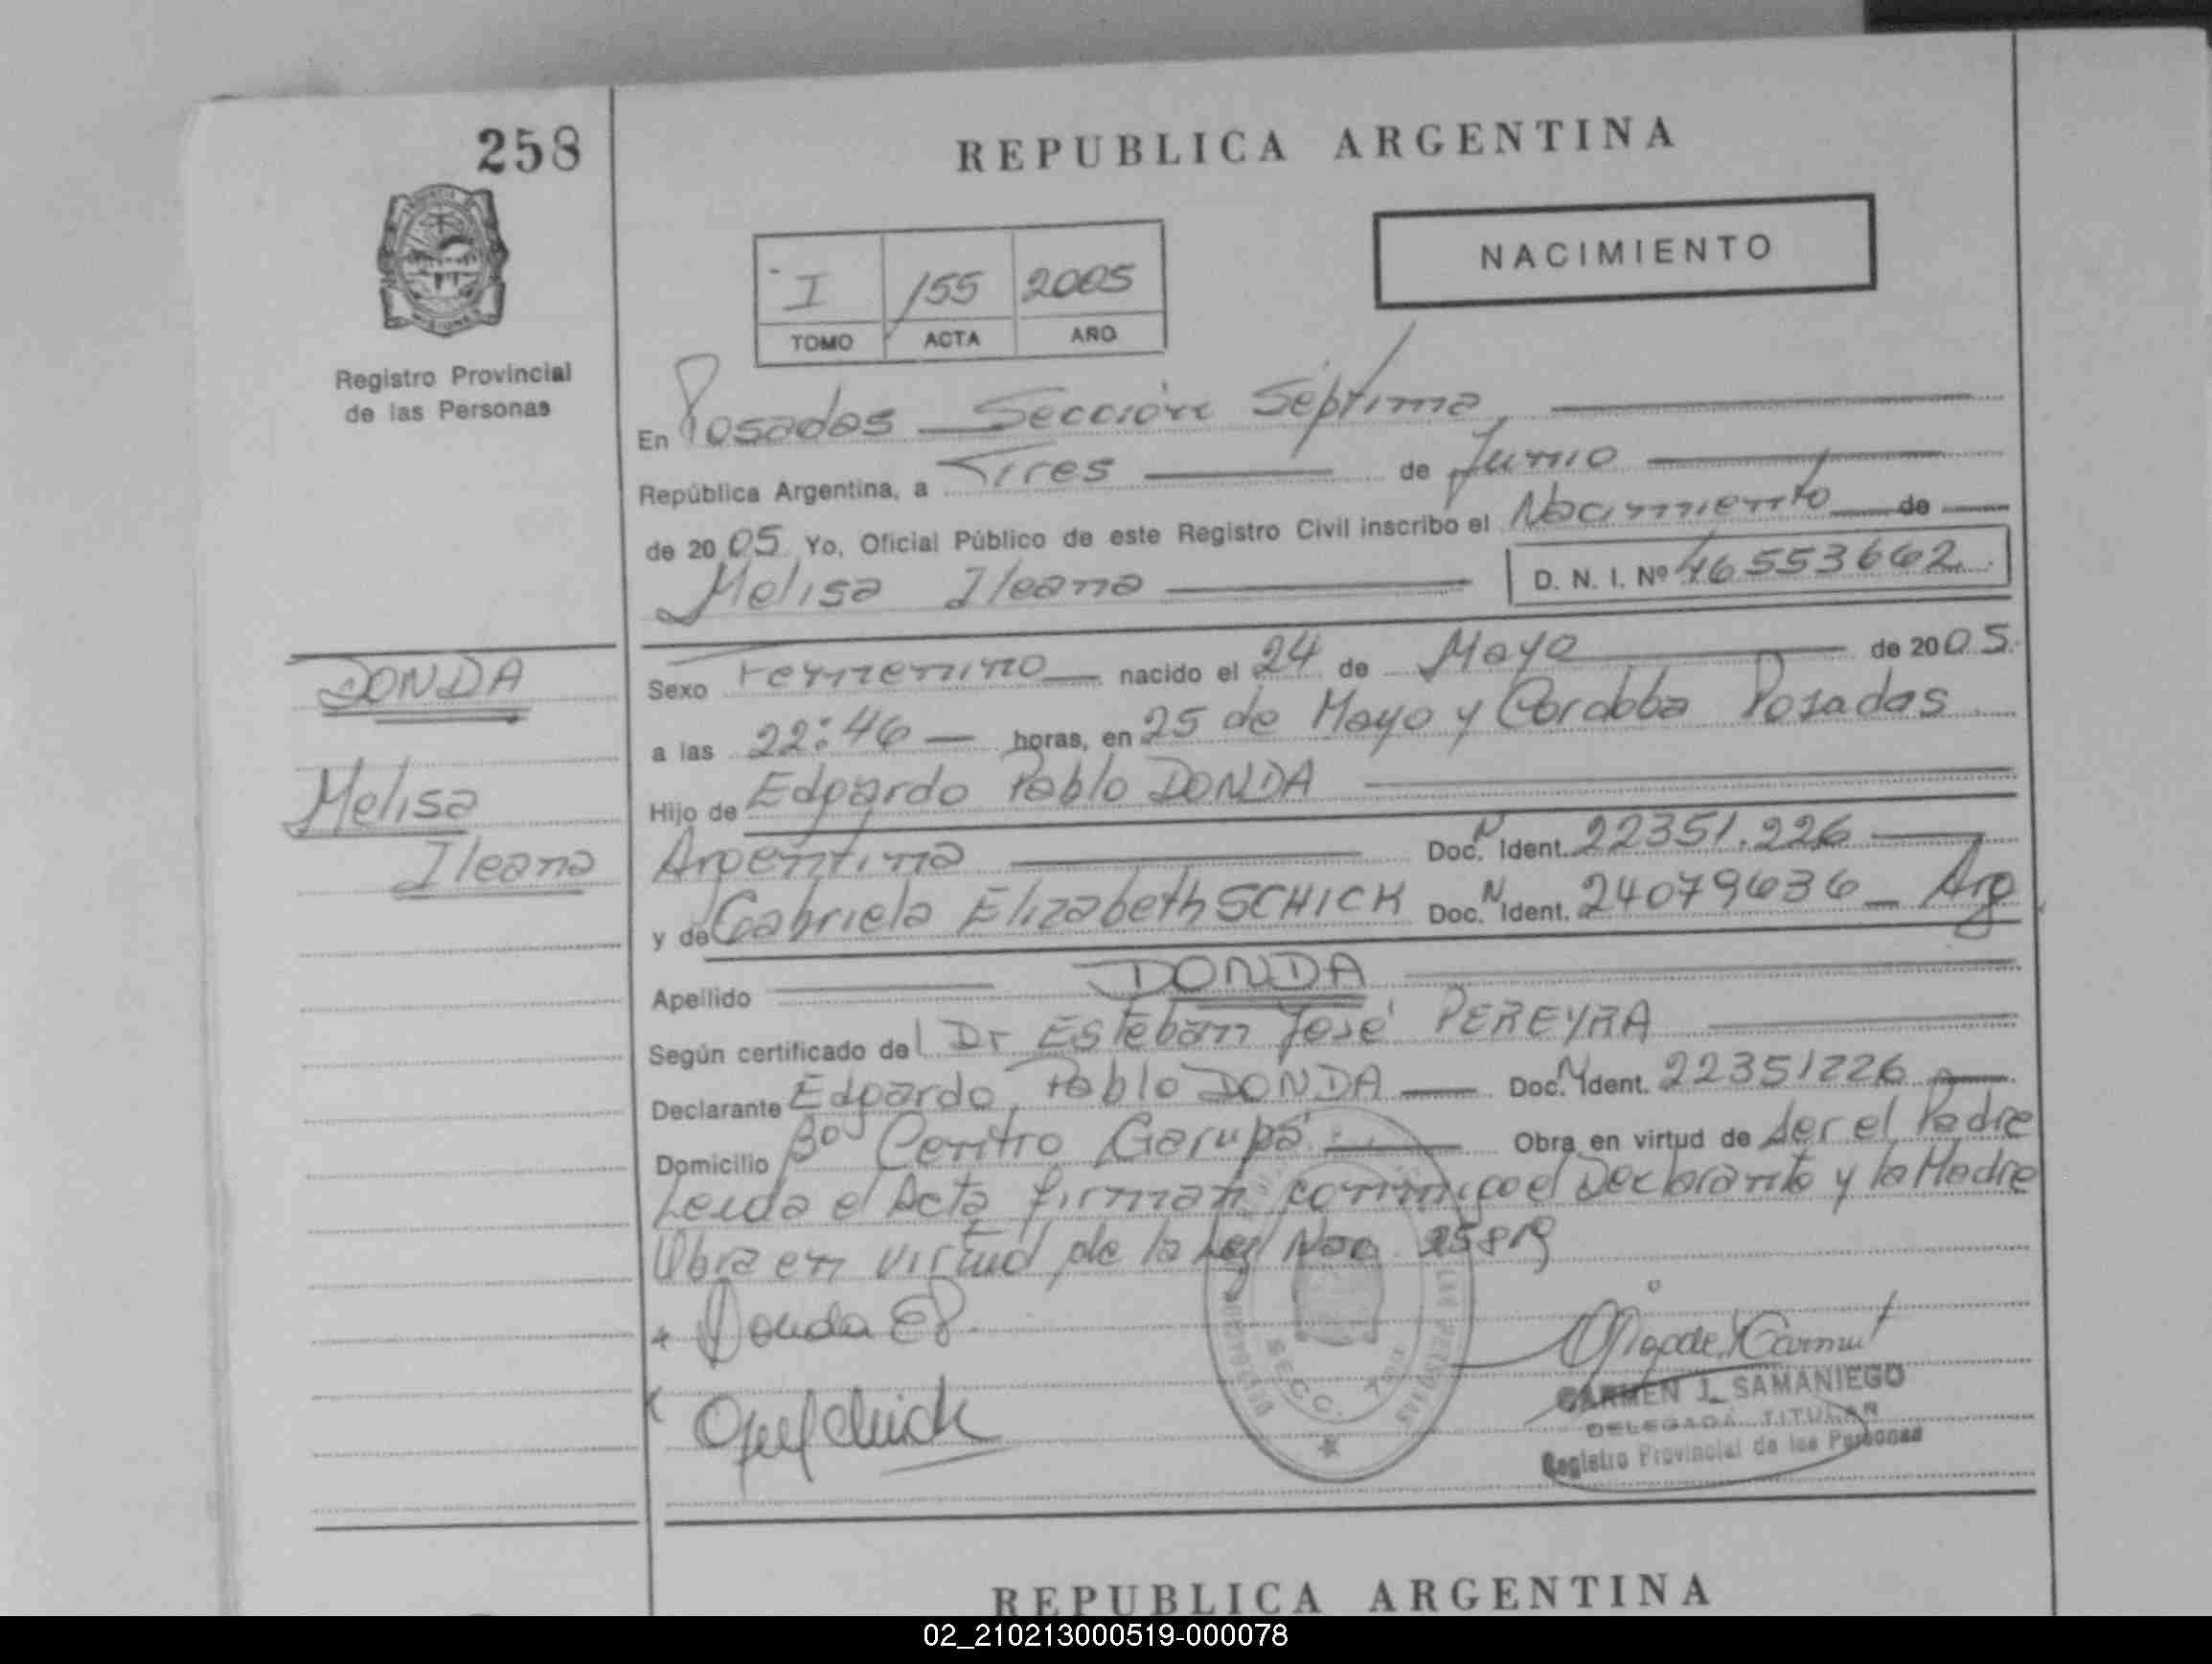 258
REPUBLICA ARGENTINA
NACIMIENTO
I 155 2005
TOMO ACTA AÑO
Registro Provincial
de las Personas
En Posadas Sección Séptima
República Argentina, a Tres de Junio
de 2005 Yo, Oficial Público de este Registro Civil inscribo el Nacimiento de
Melisa Ileana D. N. I. Nº 46553662
DONDA
Melisa
Ileana
Sexo Femenino nacido el 24 de Mayo de 2005
a las 22:46 horas, en 25 de Mayo y Cordoba Posadas
Hijo de Edgardo Pablo DONDA
Argentina Doc. N Ident. 22351.226
y de Gabriela Elizabeth SCHICK Doc. N Ident. 24079636 Arg
Apellido DONDA
Según certificado del Dr Esteban José PEREYRA
Declarante Edgardo Pablo DONDA Doc. N Ident. 22351226
Domicilio Bº Centro Garupá Obra en virtud de ser el Padre
Leida el Acta firman conmigo el Declarante y la Madre
Obra en virtud de la Ley Nac 25819
Donda EP
SECC. 7ma
CARMEN J. SAMANIEGO
DELEGADA TITULAR
Registro Provincial de las Personas
REPUBLICA ARGENTINA
02_210213000519-000078